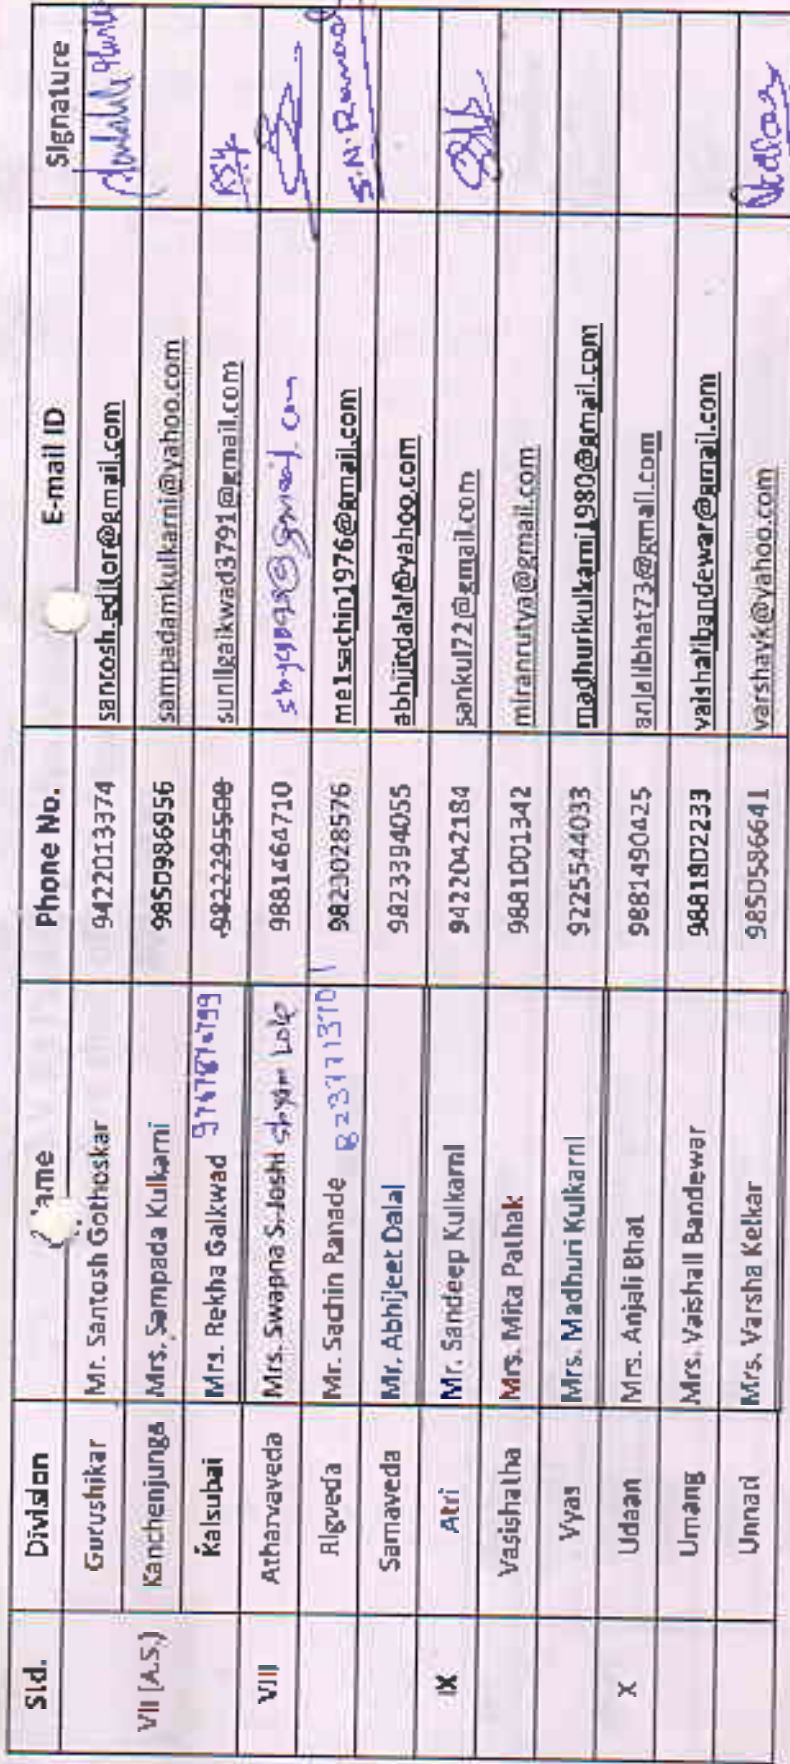 Std. Division Name Phone No. E-mail ID Signature
Gurushikar Mr. Santosh Gothoskar 9422013374 santosh.editor@gmail.com
VII (A.S.) Kanchenjunga Mrs. Sampada Kulkarni 9850986956 sampadamkulkarni@yahoo.com
Kalsubai Mrs. Rekha Gaikwad 9822295500 sunilgaikwad3791@gmail.com
VIII Atharvaveda Mrs. Swapna S. Joshi Shyam Lole 9881464710
Rigveda Mr. Sachin Ranade 8237713701 9823028576 melsachin1976@gmail.com S.N. Ranade
Samaveda Mr. Abhijeet Dalal 9823394055 abhijitdalal@yahoo.com
IX Atri Mr. Sandeep Kulkarni 9422042184 sankul72@gmail.com
Vasishatha Mrs. Mita Pathak 9881001342 miranrutya@gmail.com
Vyas Mrs. Madhuri Kulkarni 9225544033 madhurikulkarni1980@gmail.com
X Udaan Mrs. Anjali Bhat 9881490425 anjalibhat73@gmail.com
Umang Mrs. Vaishali Bandewar 9881802233 vaishalibandewar@gmail.com
Unnati Mrs. Varsha Kelkar 9850586641 varshavk@yahoo.com